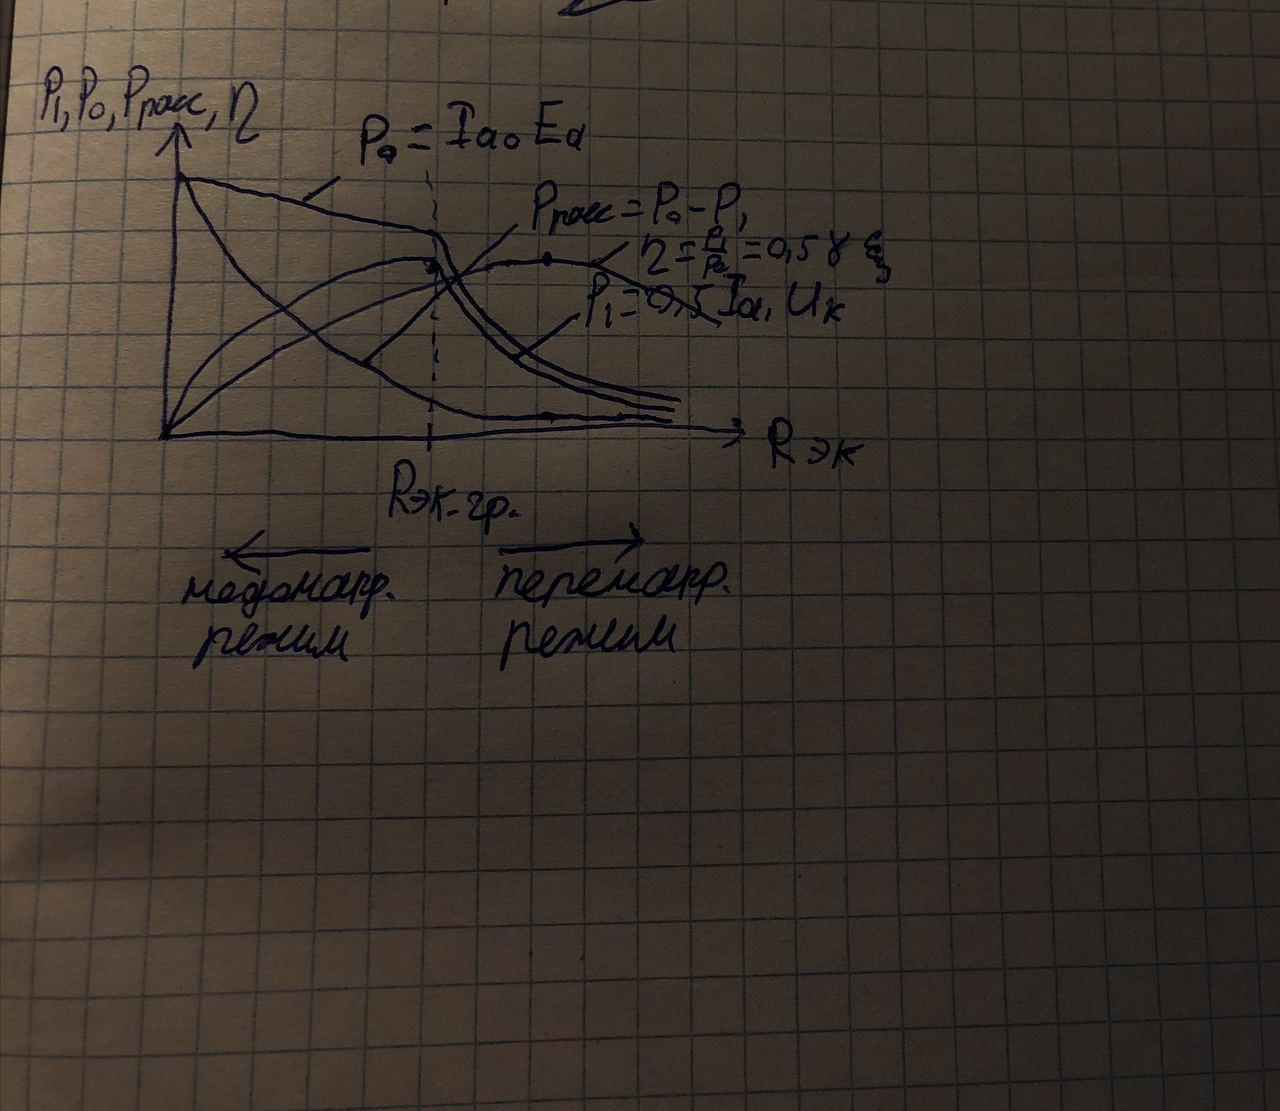 P₁, P₀, Pрасс, η
P₀ = Iа₀ Eа
Pрасс = P₀ - P₁
η = P₁/P₀ = 0,5 γ ξ
P₁ = 0,5 Iа₁ Uк
Rэк
Rэк.гр.
недонапр.
режим
перенапр.
режим